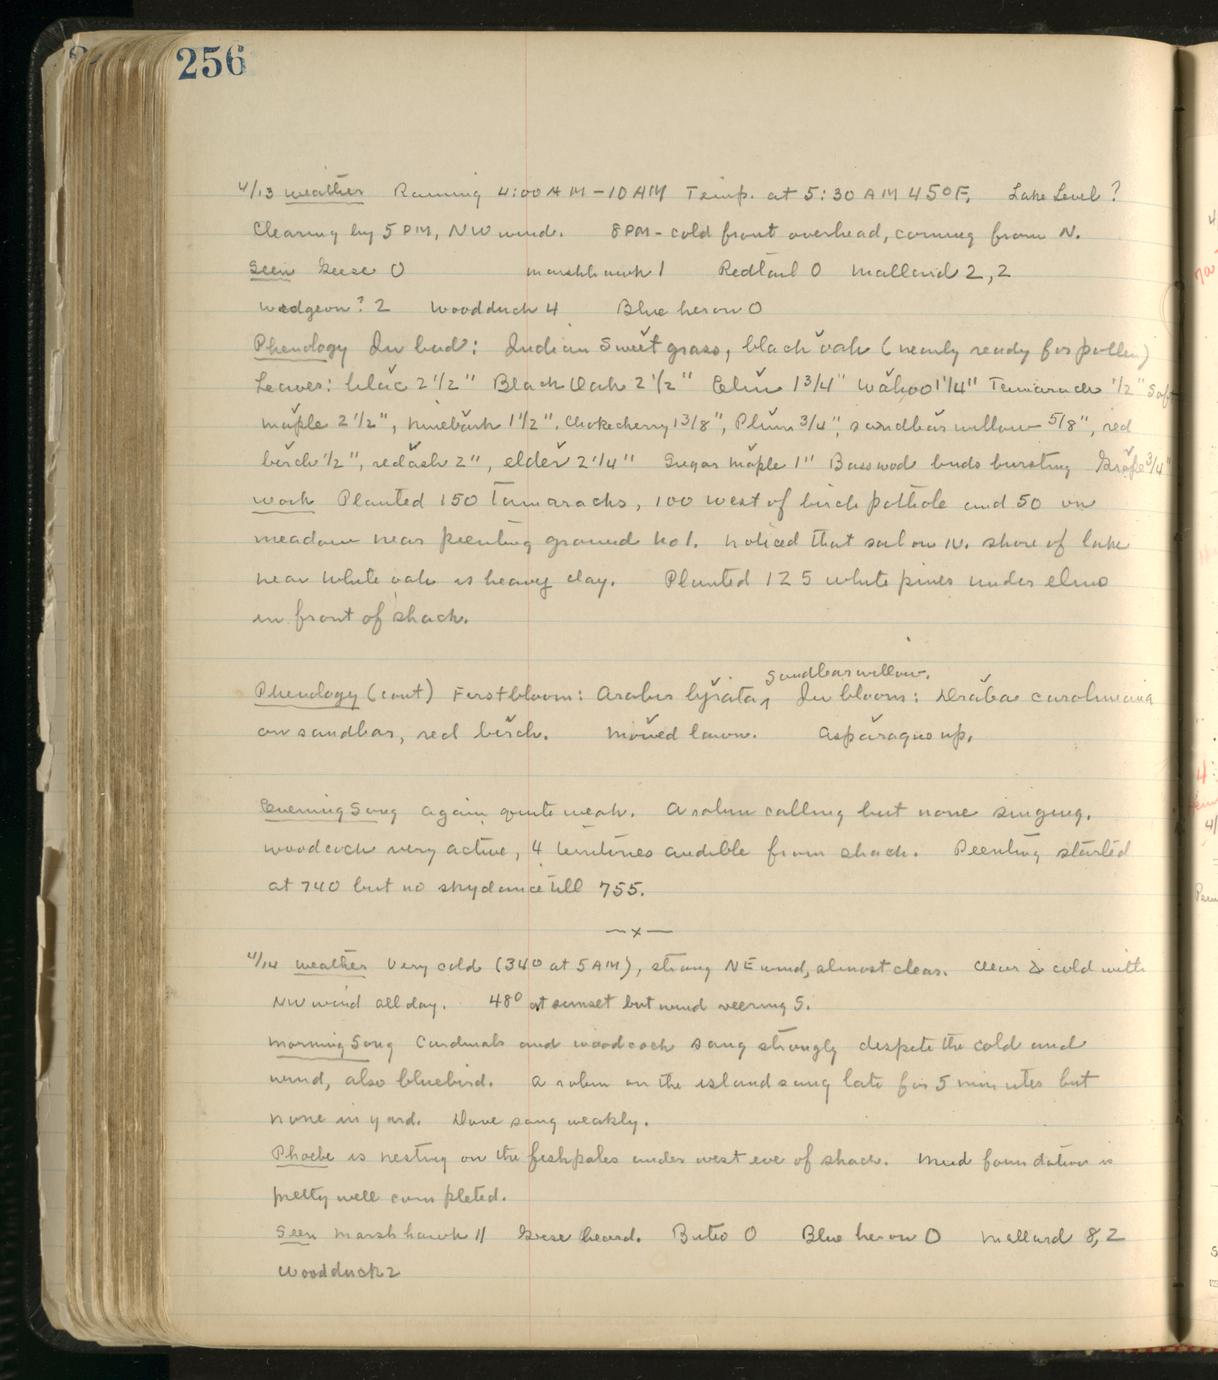 256
4/13 Weather Raining 4:00 AM - 10 AM Temp. at 5:30 AM 45°F. Lake Level ?
Clearing by 5 PM, NW wind. 8 PM - cold front overhead, coming from N.
Seen Geese 0 Marshhawk 1 Redtail 0 Mallard 2, 2
Widgeon? 2 Woodduck 4 Blue heron 0
Phenology In bud: Indian Sweet grass, black oak (nearly ready for pollen)
Leaves: lilac 2 1/2" Black Oak 2 1/2" Elm 1 3/4" Wahoo 1 1/4" Tamarack 1/2" Soft
maple 2 1/2", ninebark 1 1/2", Chokecherry 1 3/8", Plum 3/4", sandbar willow 5/8", red
birch 1/2", red ash 2", elder 2 1/4" Sugar maple 1" Basswood buds bursting Grape 3/4"
Work Planted 150 Tamaracks, 100 west of birch pothole and 50 on
meadow near peenting ground No 1. Noticed that soil on N. shore of lake
near white oak is heavy clay. Planted 125 white pines under elms
in front of shack.
Sandbar willow.
Phenology (cont) First bloom: Arabis lyrata, ^ In bloom: Draba caroliniana
on sandbar, red birch. Mowed lawn. Asparagus up.
Evening Song again quite weak. A robin calling but none singing.
Woodcock very active, 4 territories audible from shack. Peenting started
at 740 but no skydance till 755.
—x—
4/14 Weather Very cold (34° at 5 AM), strong NE wind, almost clear. Clear & cold with
NW wind all day. 48° at sunset but wind veering S.
Morning Song Cardinals and woodcock sang strongly despite the cold and
wind, also bluebird. A robin on the island sang late for 5 minutes but
none in yard. Dove sang weakly.
Phoebe is nesting on the fishpoles under west eve of shack. Mud foundation is
pretty well completed.
Seen Marsh hawk 11 Geese heard. Buteo 0 Blue heron 0 Mallard 8, 2
Woodduck 2